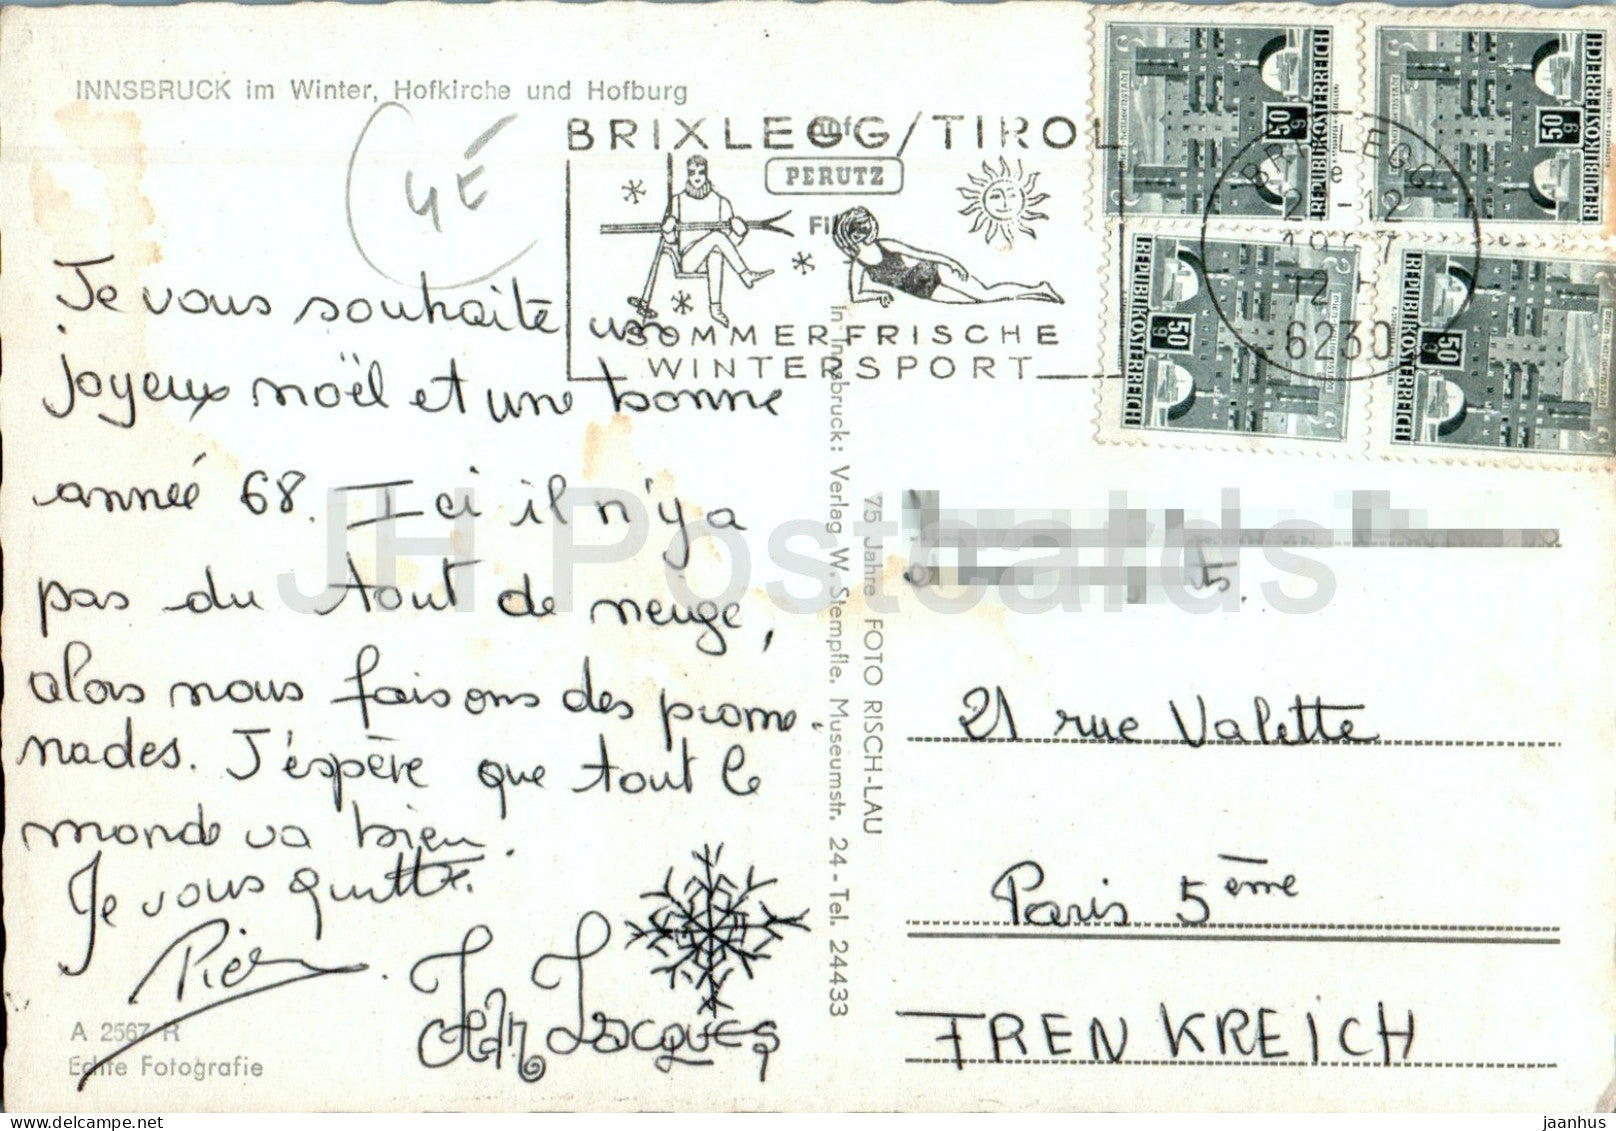 INNSBRUCK im Winter, Hofkirche und Hofburg
4E
BRIXLEGG/TIROL
auf
PERUTZ
Film
SOMMERFRISCHE
WINTERSPORT
REPUBLIK ÖSTERREICH
50 g
REPUBLIK ÖSTERREICH
50 g
REPUBLIK ÖSTERREICH
50 g
REPUBLIK ÖSTERREICH
50 g
BRIXLEGG
e
6230
Je vous souhaite un
joyeux noël et une bonne
année 68. Ici il n'y a
pas du tout de neige,
alors nous faisons des prome.
nades. J'éspère que tout le
monde va bien.
Je vous quitte.
Jean Jacques
A 2567 R
Echte Fotografie
In Innsbruck: Verlag W. Stempfle, Museumstr. 24 - Tel. 24433
75 Jahre FOTO RISCH-LAU
21 rue Valette
Paris 5ème
FRENKREICH
JH Postcards
jaanhus